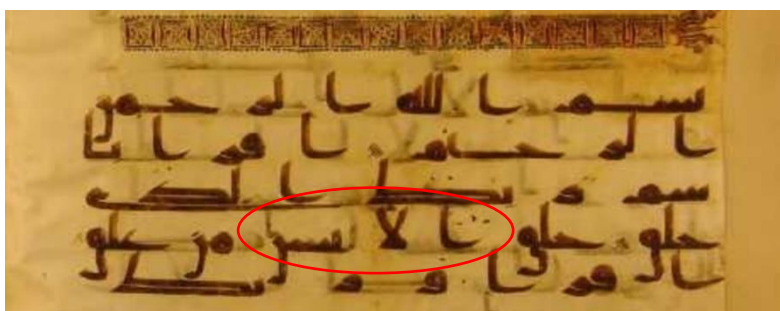 بسم الله الرحمن
الرحيم اقرا با
سم ربك الذي
خلق خلق الانسن من علق
اقرا و ربك